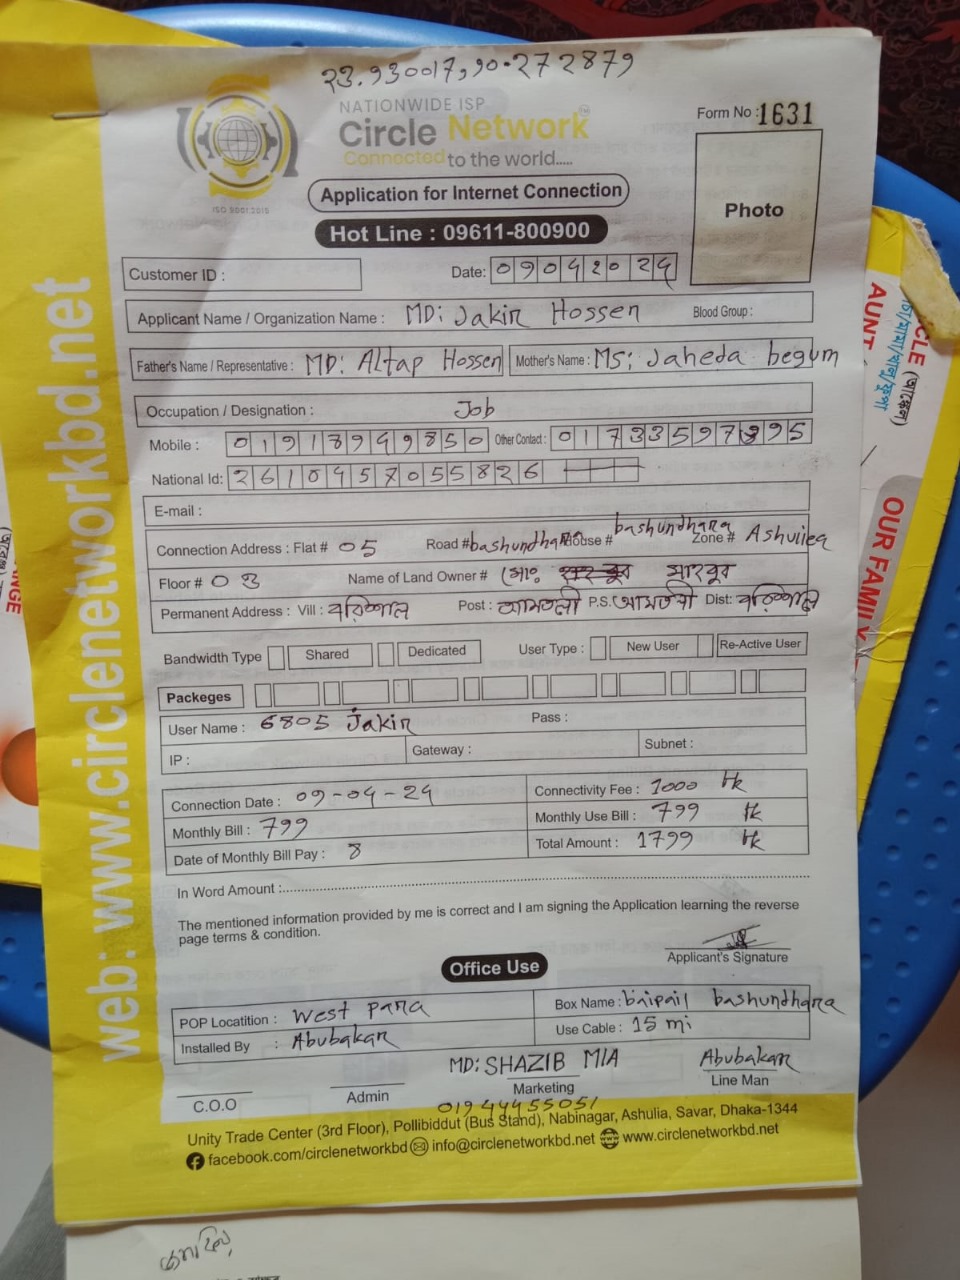 23.930017,90.272879
NATIONWIDE ISP
Circle Network™
Connected to the world.....
ISO 9001:2015
Form No : 1631
Photo
Application for Internet Connection
Hot Line : 09611-800900
Customer ID :
Date: 09042024
Applicant Name / Organization Name : MD: Jakir Hossen Blood Group :
Father's Name / Representative : MD: Altap Hossen Mother's Name : MS; Jaheda begum
Occupation / Designation : Job
Mobile : 01918949850 Other Contact : 01733597895
National Id: 2610457055826
E-mail :
Connection Address : Flat # 05 Road # bashundhara House # bashundhara Zone # Ashuliea
Floor # 03 Name of Land Owner # মোঃ মাহবুব
Permanent Address : Vill : বরিশাল Post : আমতলী P.S. আমতলী Dist: বরিশাল
Bandwidth Type Shared Dedicated User Type : New User Re-Active User
Packeges
User Name : 6805 Jakir Pass :
IP : Gateway : Subnet :
Connection Date : 09-04-24 Connectivity Fee : 1000 tk
Monthly Bill : 799 Monthly Use Bill : 799 tk
Date of Monthly Bill Pay : 8 Total Amount : 1799 tk
In Word Amount :
The mentioned information provided by me is correct and I am signing the Application learning the reverse
page terms & condition.
Applicant's Signature
Office Use
POP Locatition : West para Box Name : baipail bashundhara
Installed By : Abubakar Use Cable : 15 mi
MD: SHAZIB MIA Abubakar
C.O.O Admin Marketing Line Man
01944455051
Unity Trade Center (3rd Floor), Pollibiddut (Bus Stand), Nabinagar, Ashulia, Savar, Dhaka-1344
facebook.com/circlenetworkbd info@circlenetworkbd.net www.circlenetworkbd.net
web: www.circlenetworkbd.net
AUNT
OUR FAMILY